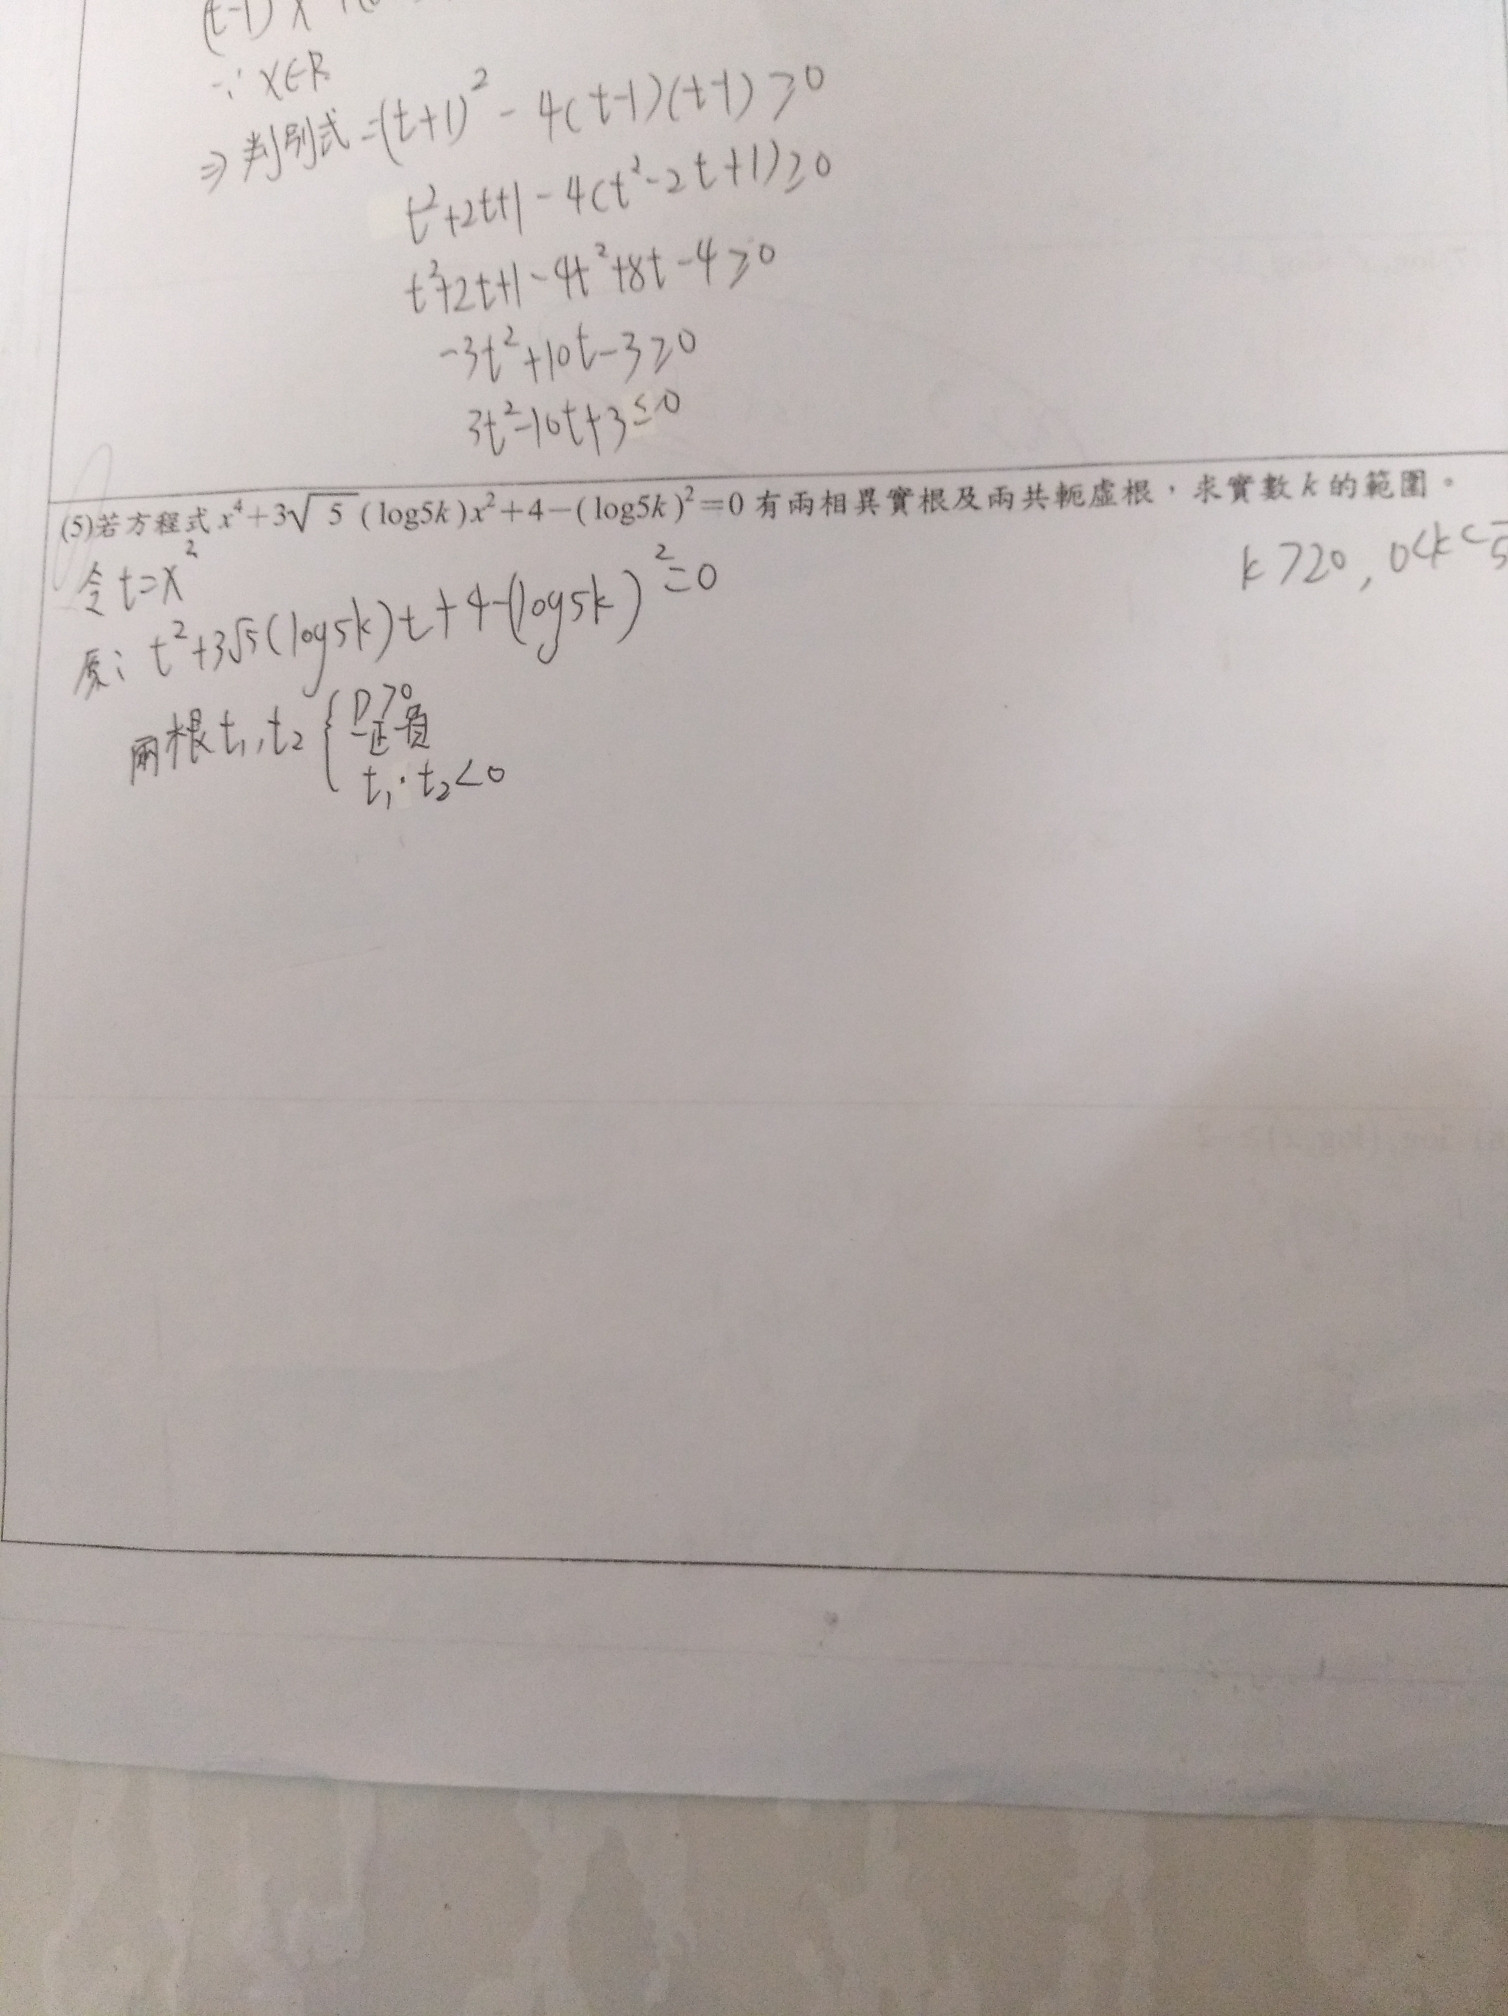 (t-1)x
∵ x∈R
⇒ 判別式=(t+1)²-4(t-1)(t-1)≥0
t²+2t+1-4(t²-2t+1)≥0
t²+2t+1-4t²+8t-4≥0
-3t²+10t-3≥0
3t²-10t+3≤0
(5)若方程式 x⁴+3√5(log5k)x²+4-(log5k)²=0 有兩相異實根及兩共軛虛根,求實數 k 的範圍。
k>20, 0<k<
令 t=x²
原: t²+3√5(log5k)t+4-(log5k)²=0
兩根 t₁,t₂ { D>0
一正一負
t₁·t₂<0